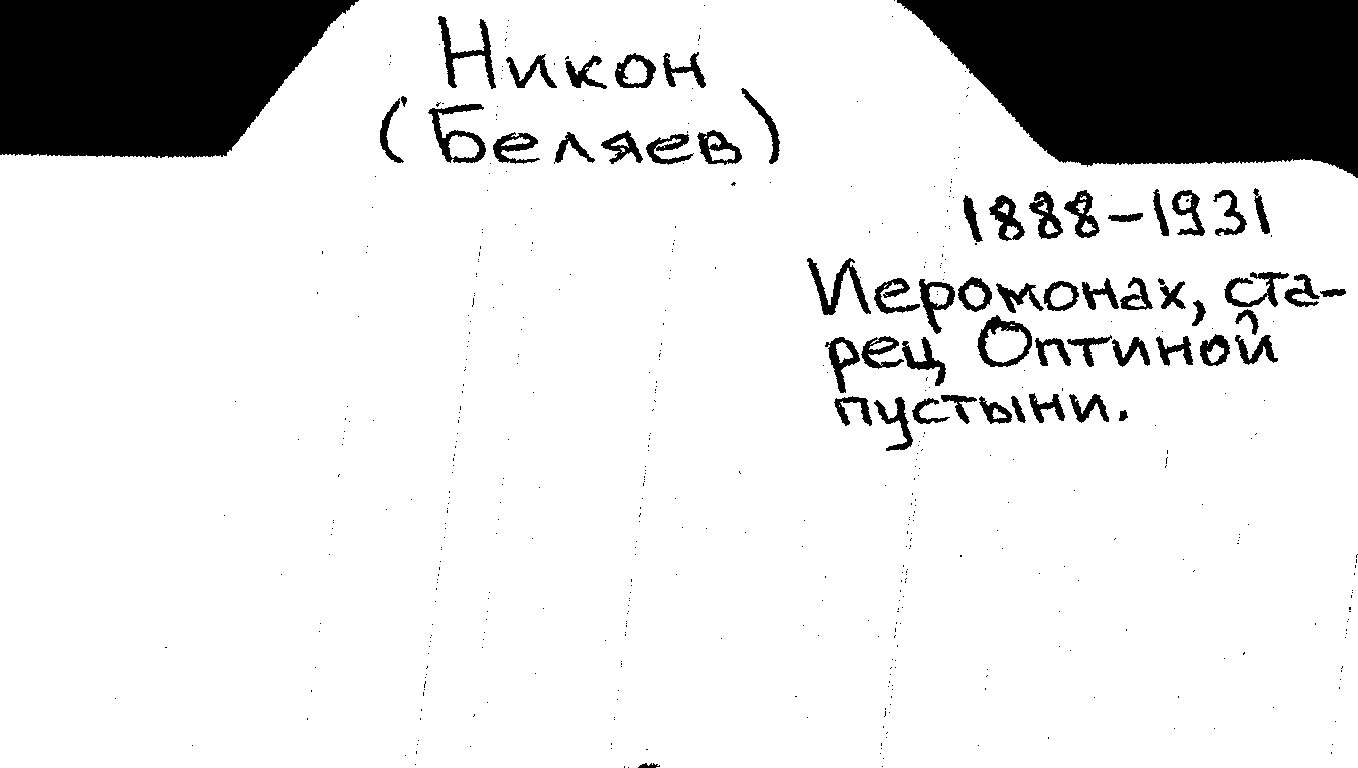 Никон
(Беляев)
1888-1931
Иеромонах, ста-
рец Оптиной
пустыни.